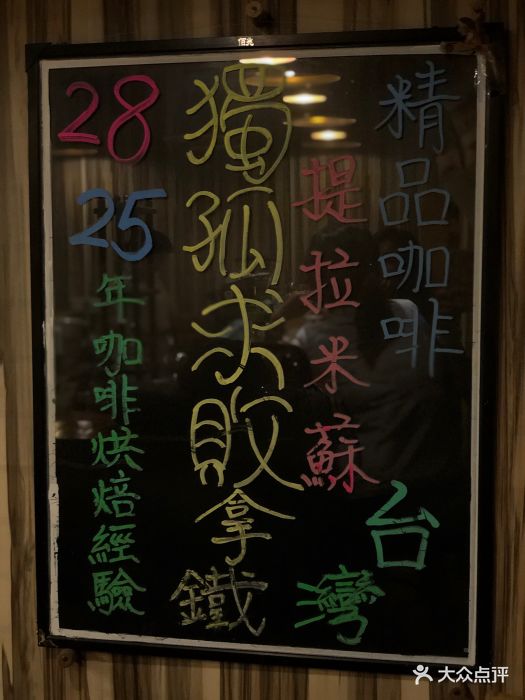 佰兆
精品咖啡
提拉米蘇
台灣
獨孤求敗拿鐵
28
25年咖啡烘焙經驗
大众点评